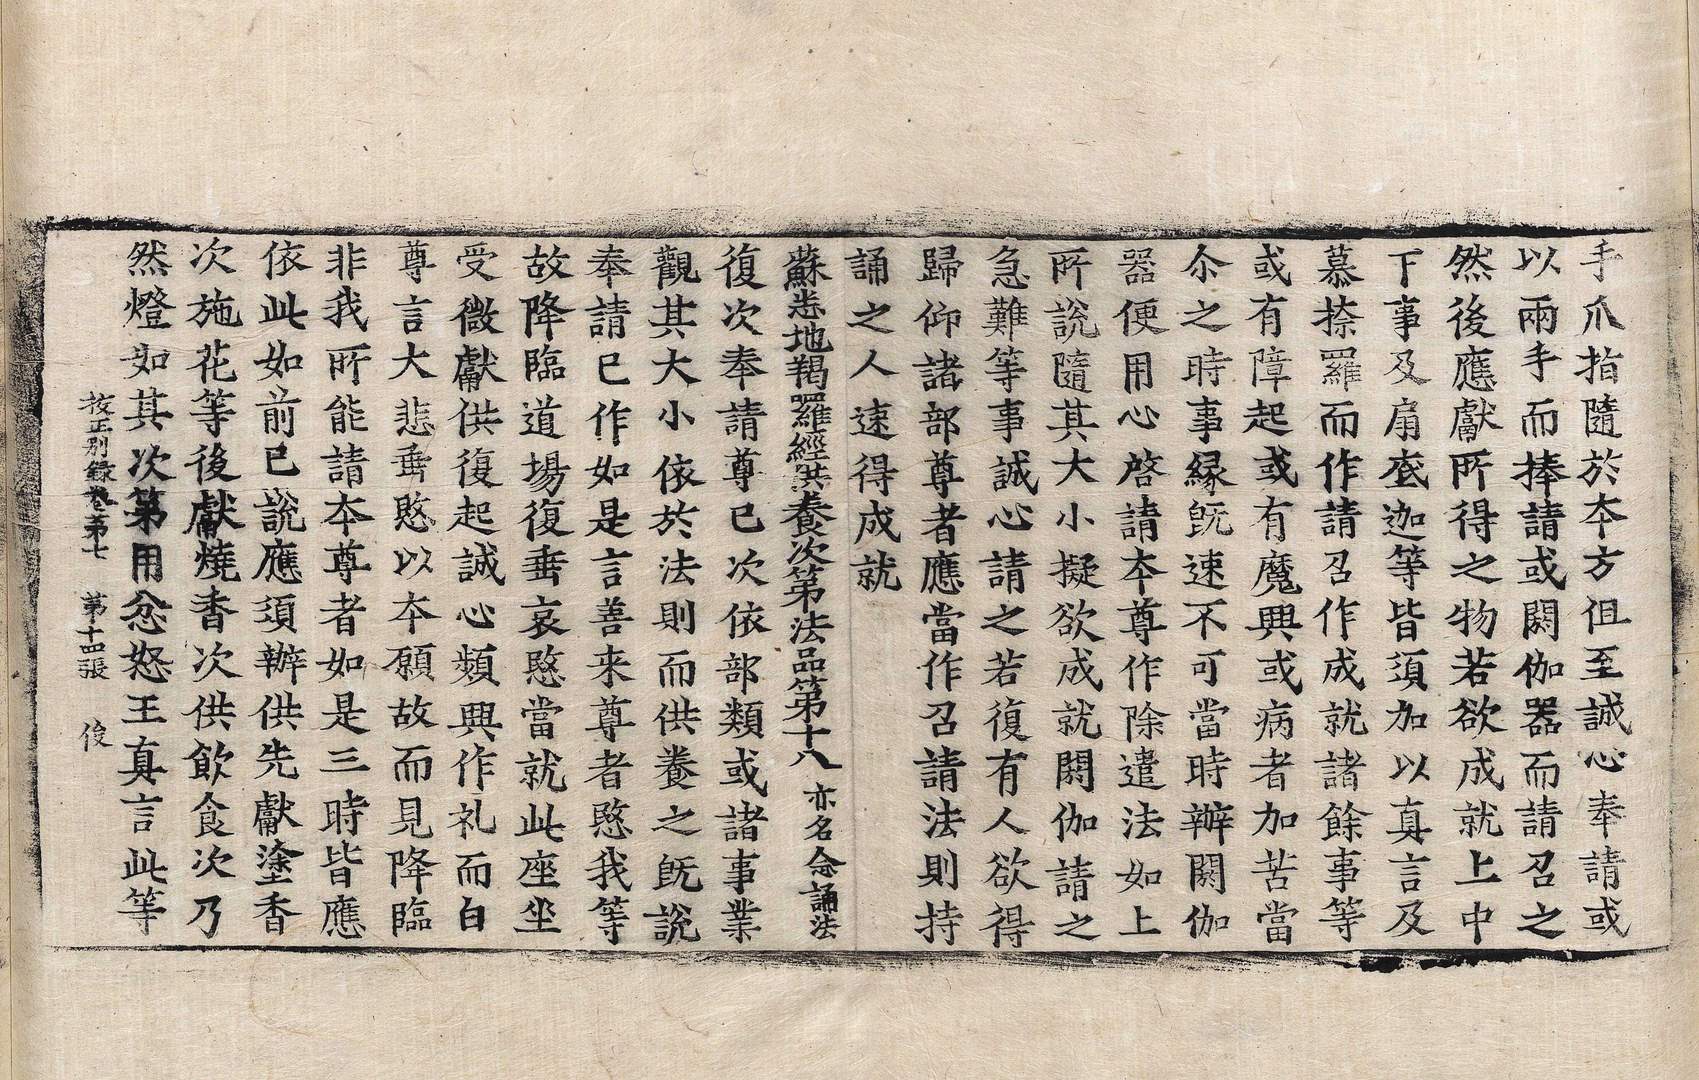 手爪指隨於本方但至誠心奉請或
以兩手而捧請或閼伽器而請召之
然後應獻所得之物若欲成就上中
下事及扇底迦等皆須加以真言及
慕捺羅而作請召作成就諸餘事等
或有障起或有魔興或病者加苦當
尒之時事緣旣速不可當時辦閼伽
器便用心啓請本尊作除遣法如上
所說隨其大小擬欲成就閼伽請之
急難等事誠心請之若復有人欲得
歸仰諸部尊者應當作召請法則持
誦之人速得成就
蘇悉地羯羅經供養次第法品第十八 亦名念誦法
復次奉請尊已次依部類或諸事業
觀其大小依於法則而供養之旣說
奉請已作如是言善來尊者愍我等
故降臨道場復垂哀愍當就此座坐
受微獻供復起誠心頻興作礼而白
尊言大悲垂愍以本願故而見降臨
非我所能請本尊者如是三時皆應
依此如前已說應須辦供先獻塗香
次施花等後獻燒香次供飲食次乃
然燈如其次第用忿怒王真言此等
挍正別錄卷第七 第十四張 俊